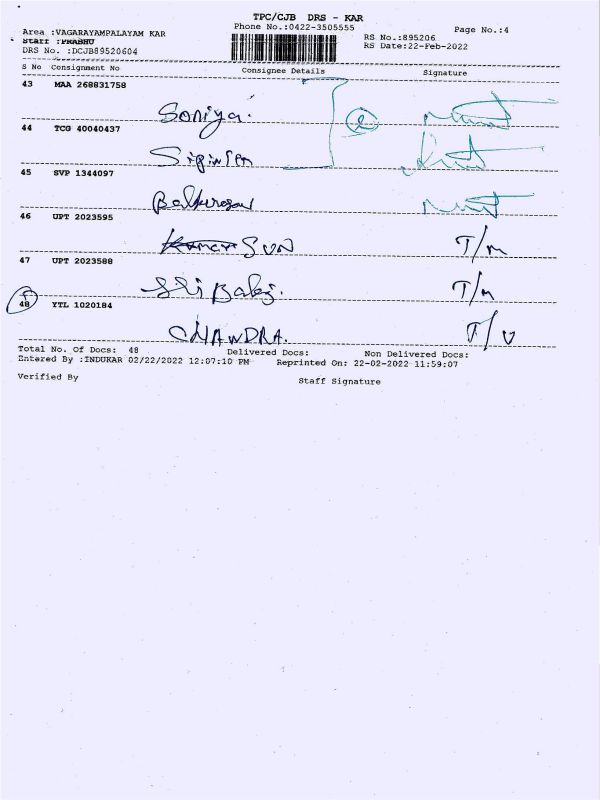 TPC/CJB DRS - KAR
Area :VAGARAYAMPALAYAM KAR
Phone No.:0422-3505555
Page No.:4
Staff :PRABHU
RS No.:895206
DRS No. :DCJB89520604
RS Date:22-Feb-2022
S No Consignment No Consignee Details Signature
43 MAA 268831758
Soniya.
44 TCG 40040437
45 SVP 1344097
46 UPT 2023595
SUN T/M
47 UPT 2023588
Sri Balaji. T/M
48 YTL 1020184
CHANDRA. T/V
Total No. Of Docs: 48 Delivered Docs: Non Delivered Docs:
Entered By :INDUKAR 02/22/2022 12:07:10 PM Reprinted On: 22-02-2022 11:59:07
Verified By Staff Signature